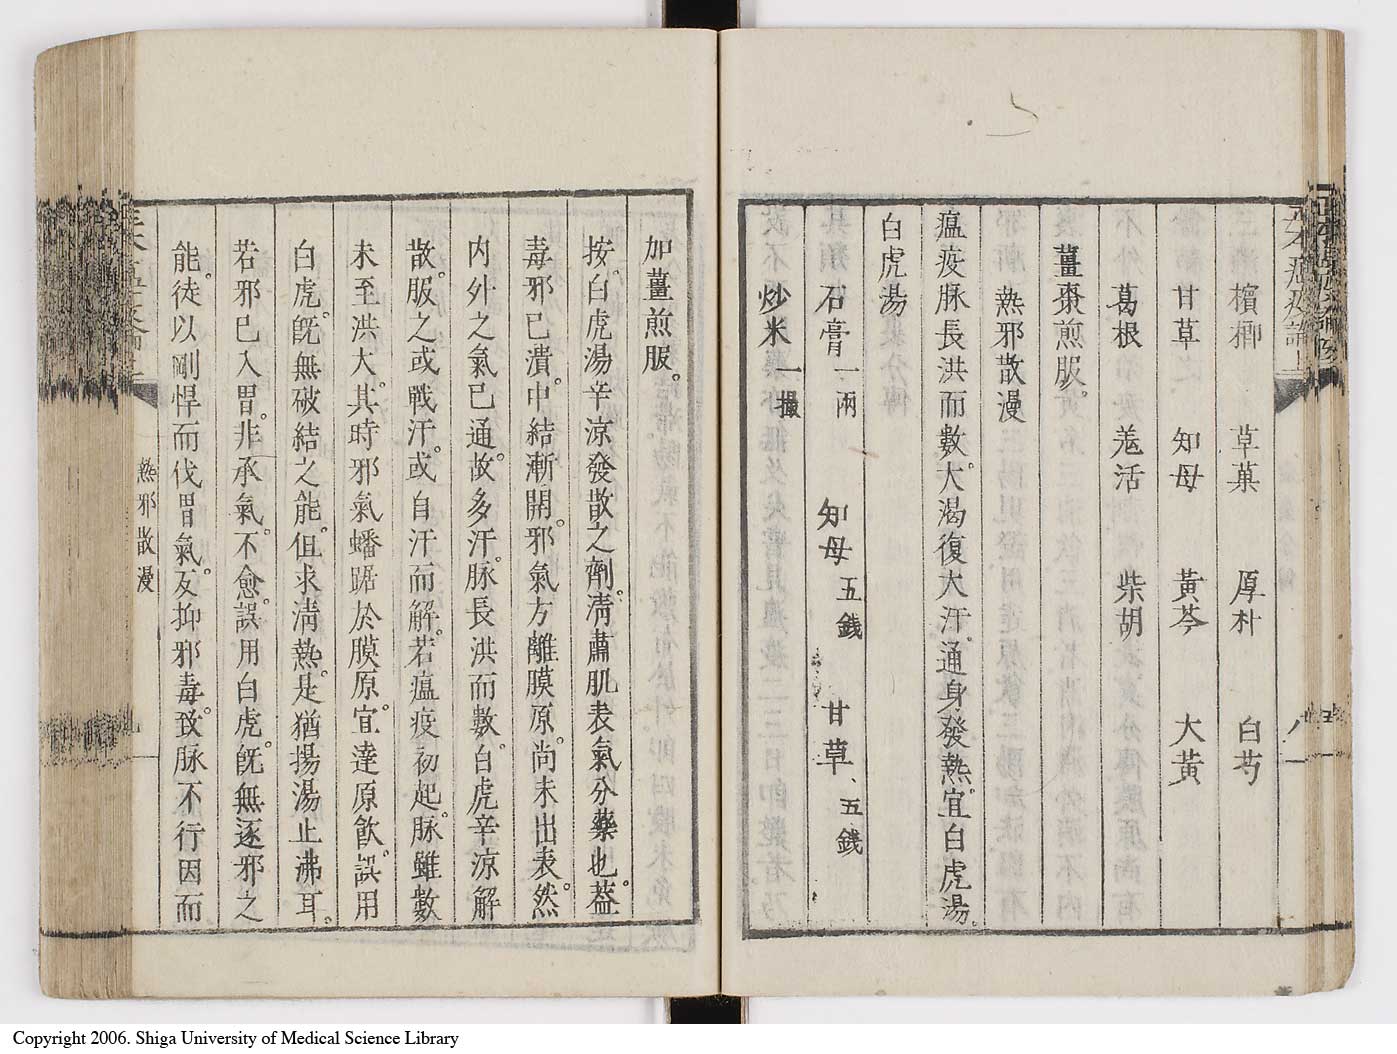 檳榔 草菓 厚朴 白芍
甘草 知母 黃芩 大黃
葛根 羗活 柴胡
薑棗煎服。
熱邪散漫
瘟疫脉長洪而數。大渴復大汗。通身發熱。宜白虎湯。
白虎湯
石膏一兩 知母五錢 甘草五錢
炒米一撮
加薑煎服。
按。白虎湯辛凉發散之劑。淸肅肌表氣分藥也。葢
毒邪已潰。中結漸開。邪氣方離膜原。尚未出表。然
内外之氣已通。故多汗。脉長洪而數。白虎辛凉解
散。服之或戰汗。或自汗而解。若瘟疫初起。脉雖數
未至洪大。其時邪氣蟠踞於膜原。宜達原飲。誤用
白虎。旣無破結之能。但求淸熱。是猶揚湯止沸耳。
若邪已入胃。非承氣。不愈。誤用白虎。旣無逐邪之
能。徒以剛悍而伐胃氣。反抑邪毒。致脉不行。因而
熱邪散漫
Copyright 2006. Shiga University of Medical Science Library